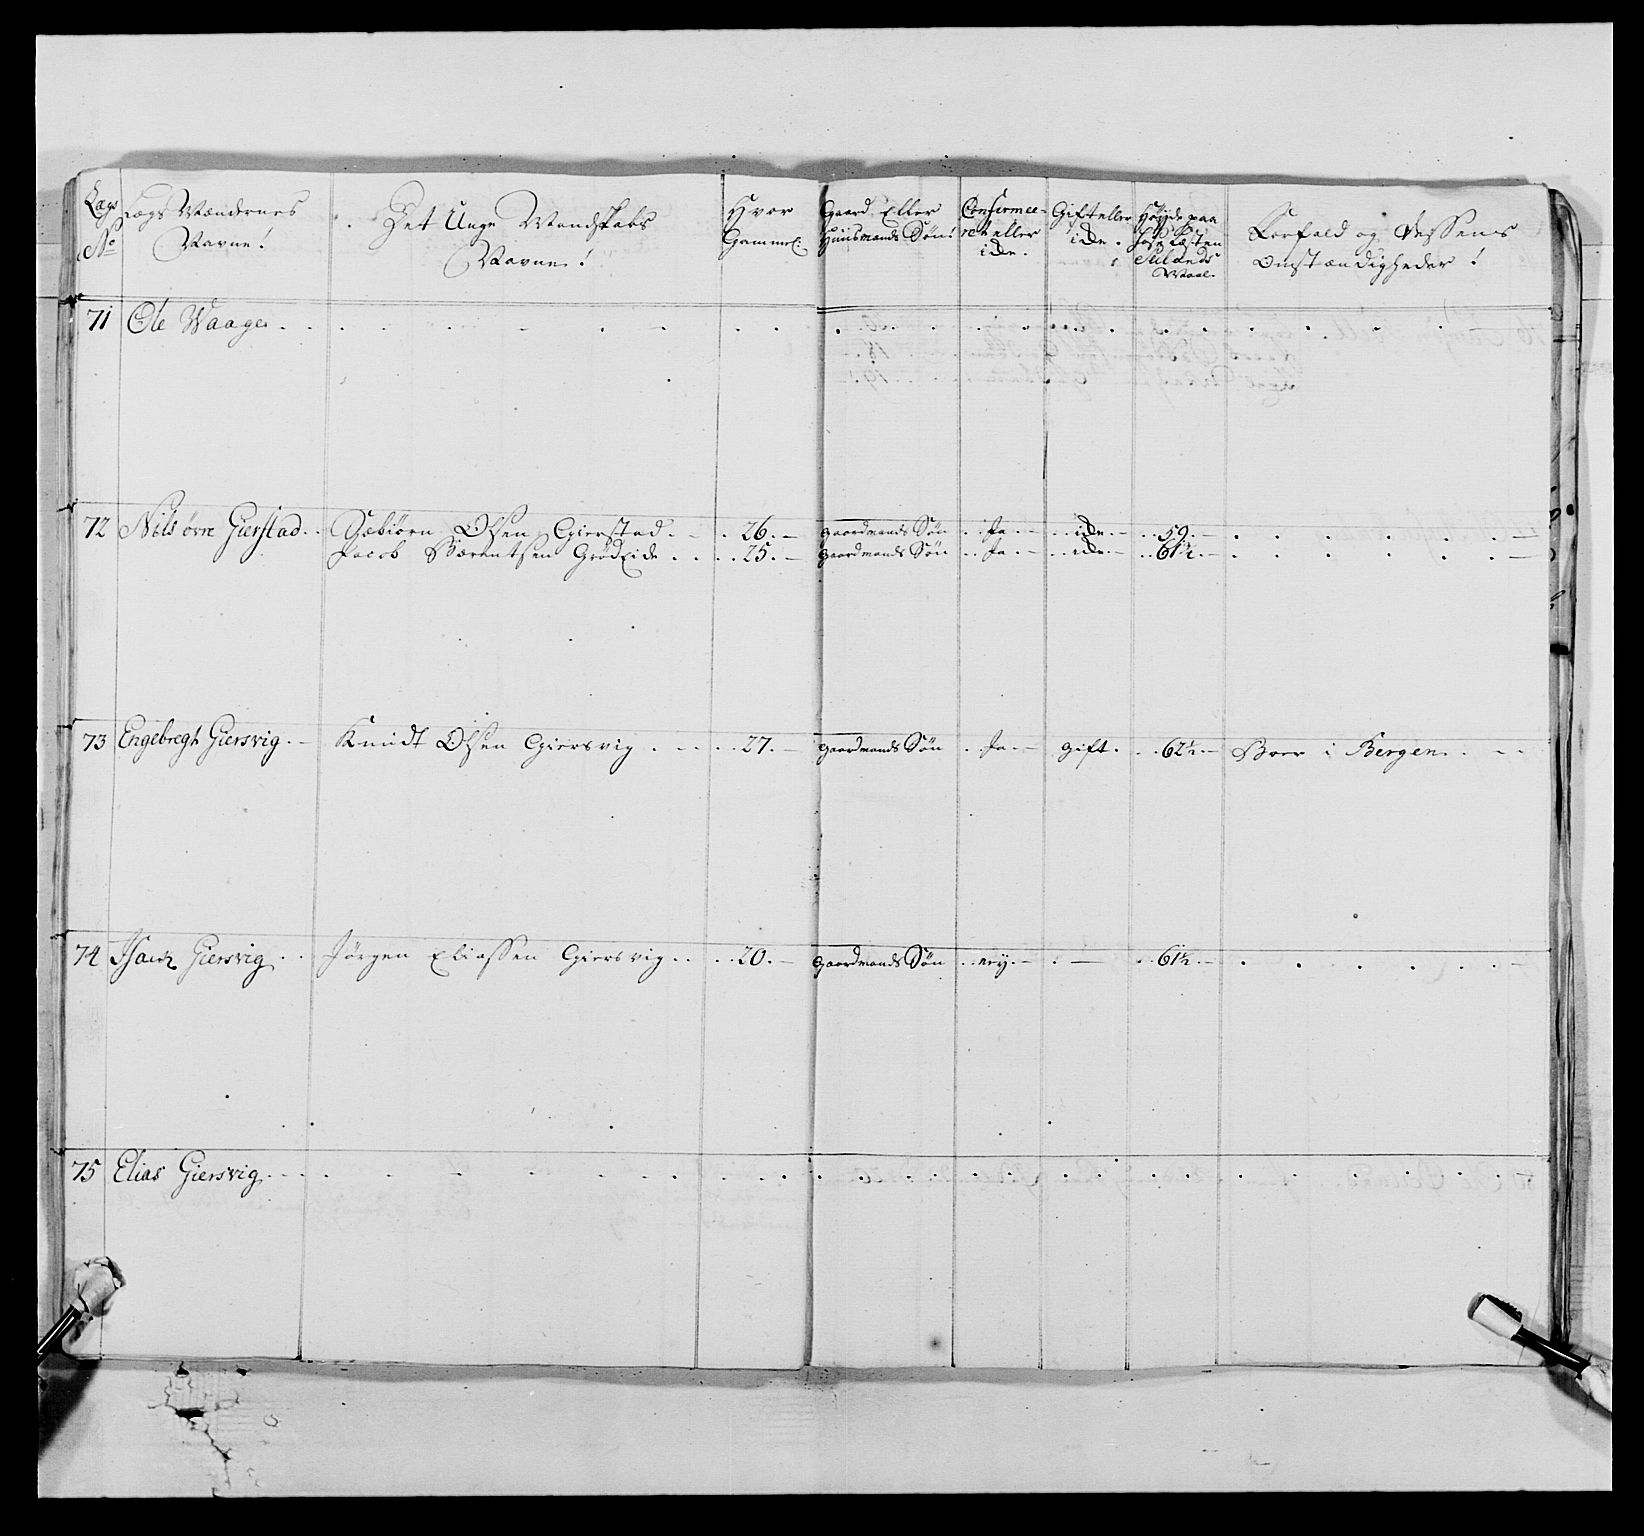 Lægs No Lægs Mændernes Navne! Det Unge Mandskabs Navne! Hvor Gammel. Gaard Eller Huusmands Søn! Confirmeret eller ide. Gift eller ide. Høyde paa Sælands Maal. Forfald og dessens Omstændigheder!
71 Ole Waage
72 Nils øvre Gierstad Sæbiörn Olsen Gierstad 26. gaardmands Søn Ja ide 59.
Jacob Bærentsen Grødeide 25. gaardmands Søn Ja ide 61½
73 Engebregt Giersvig Knudt Olsen Giersvig 27. gaardmands Søn Ja gift 62½ Boer i Bergen
74 Isach Giersvig Jörgen Eliassen Giersvig 20. gaardmands Søn ney 61½
75 Elias Giersvig